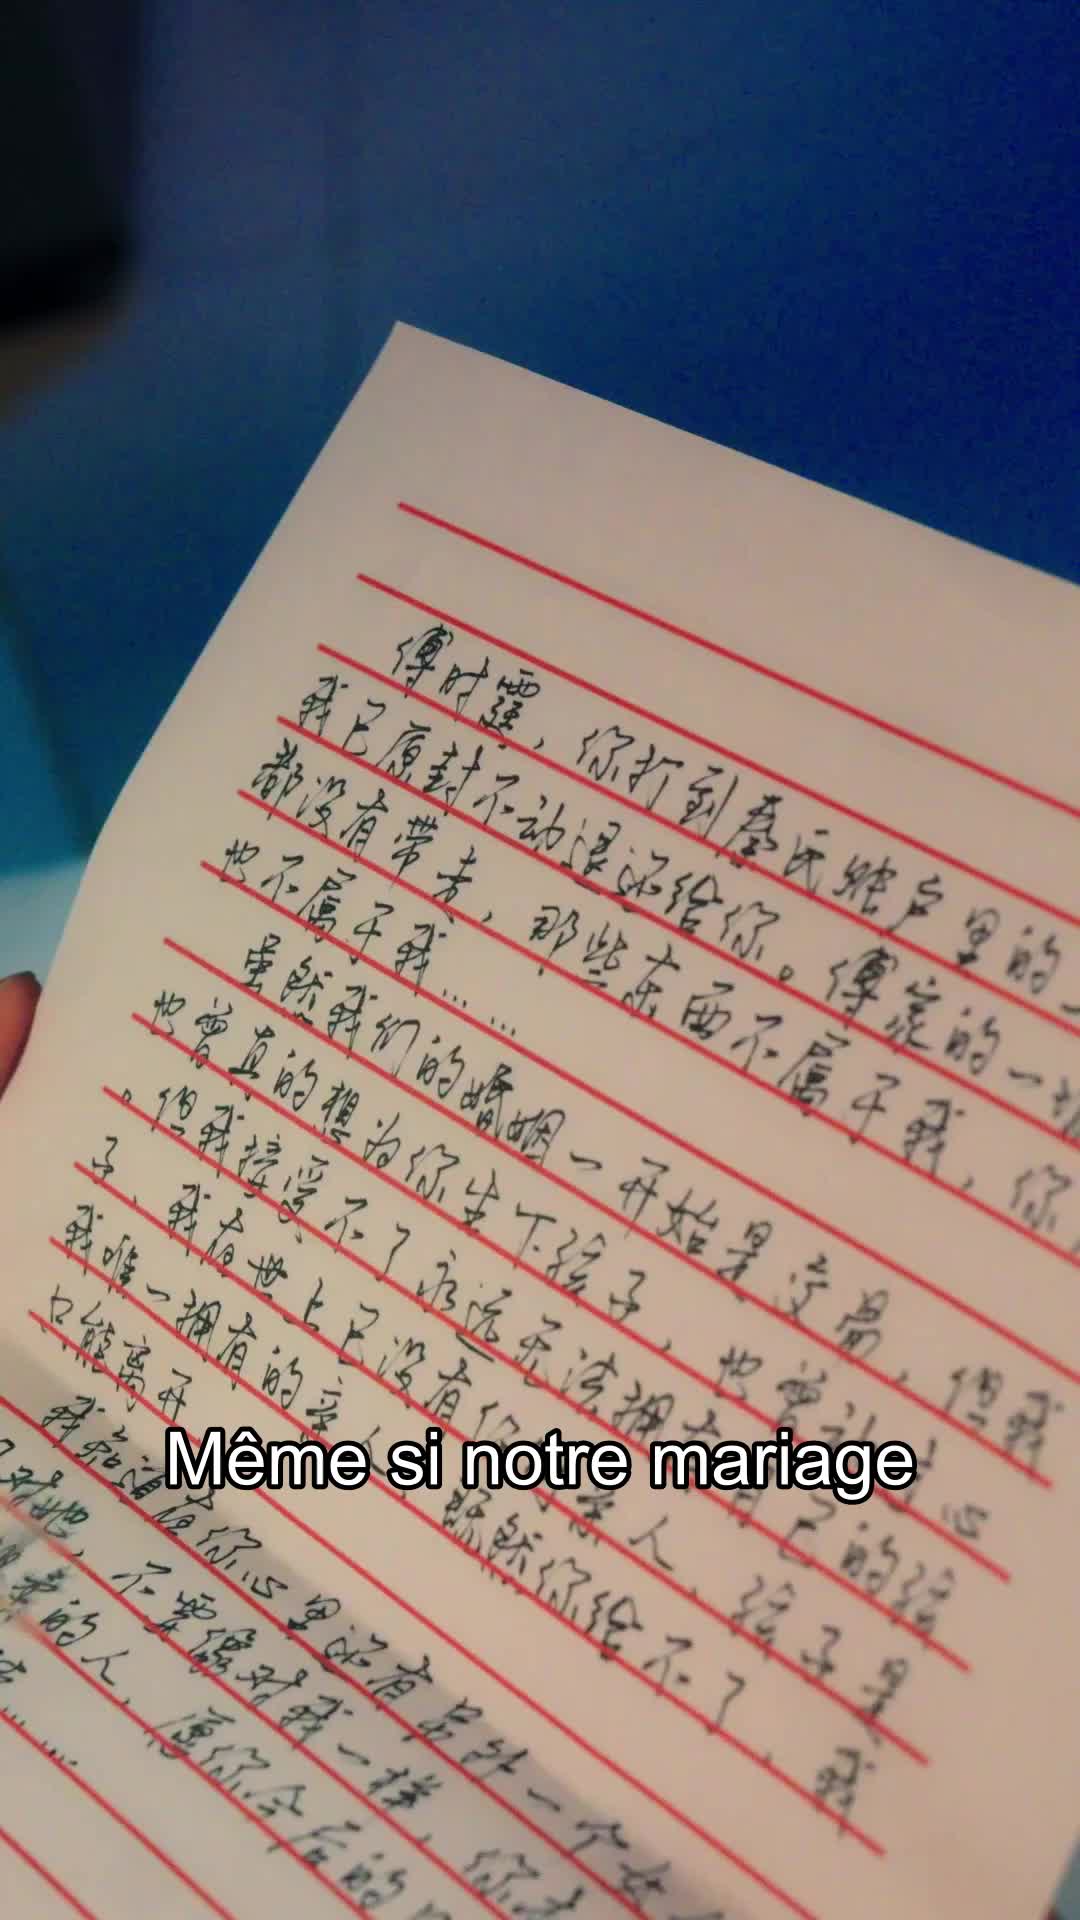 傅时霆，你打到秦氏账户里的一
我已原封不动退还给你。傅家的一切
都没有带走，那些东西不属于我，你
也不属于我……
虽然我们的婚姻一开始是交易，但我
也曾真的想为你生下孩子，也曾动过心
。但我接受不了永远无法拥有自己的孩
子，我在世上已没有 亲人，孩子是
我唯一拥有的亲人 既然你给不了，我
只能离开
我知道在你心里还有另外一个女
对她，不要像对我一样，你才
的人，愿你今后的
……
Même si notre mariage